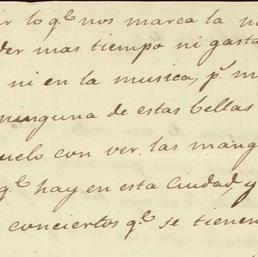 ir lo q.e nos marca la n
der mas tiempo ni gasta
ni en la musica; p.r m
ninguna de estas bellas
uelo con ver las mang
q.e hay en esta Ciudad y
conciertos q.e se tienen